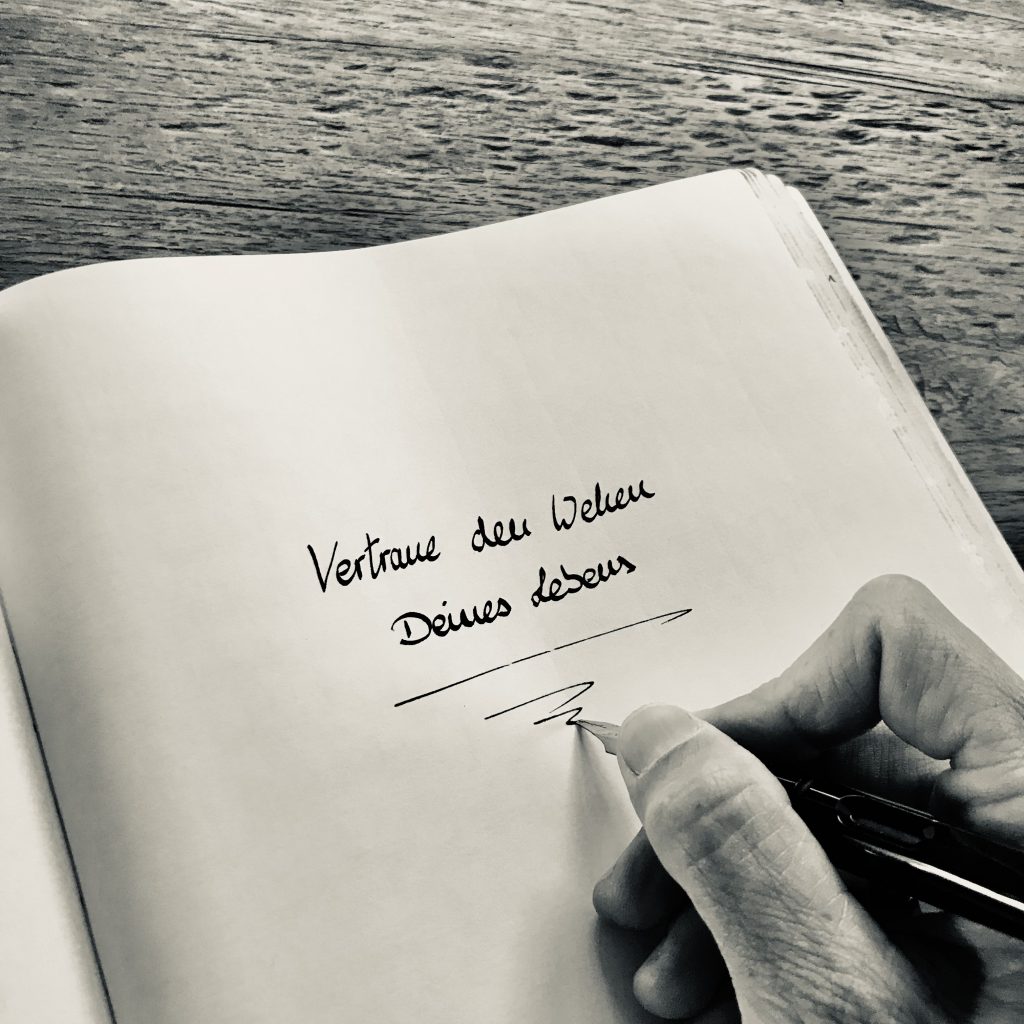 Vertraue den Wehen
Deines Lebens